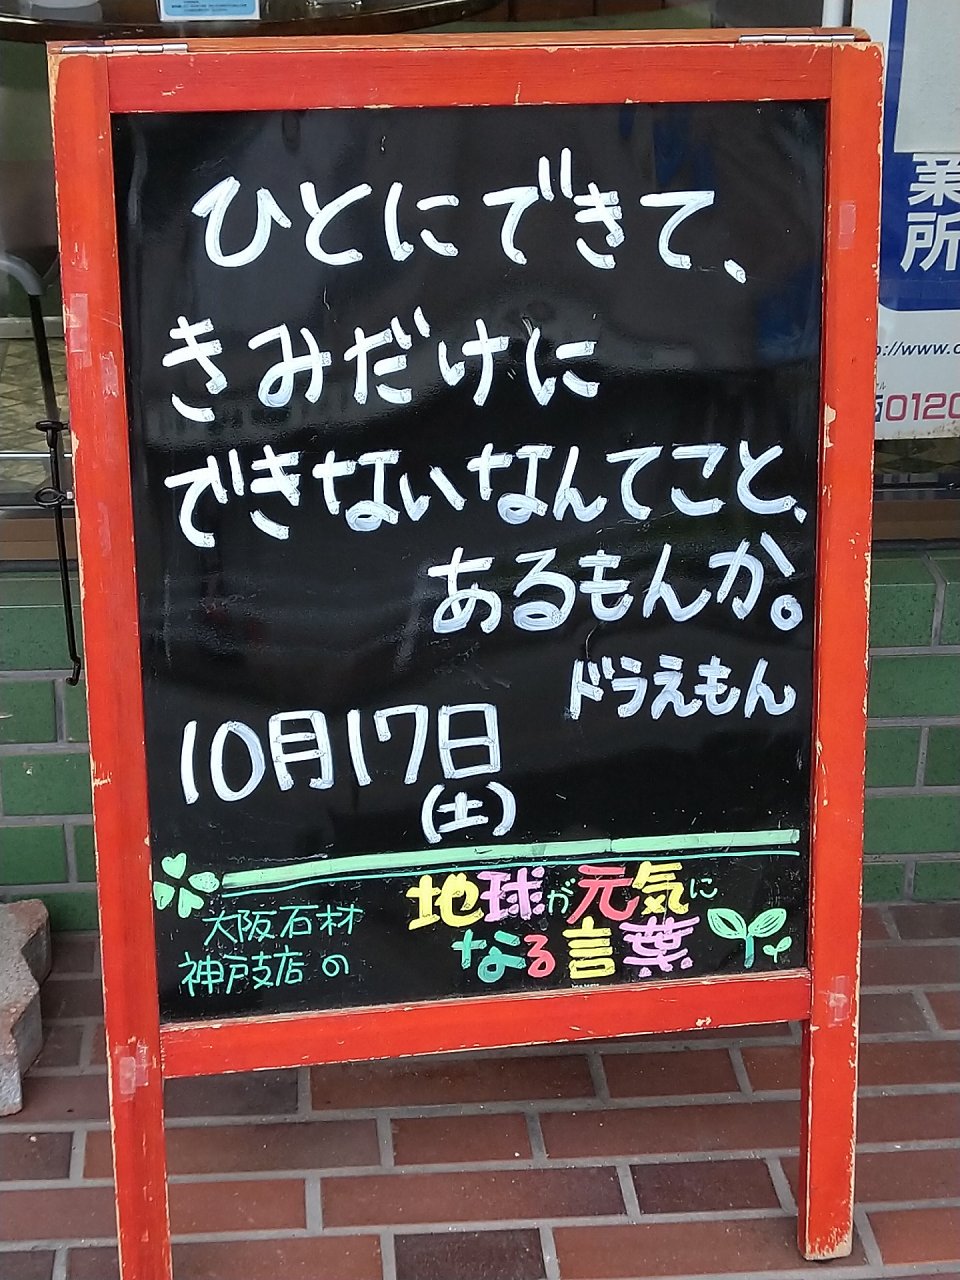 ひとにできて、
きみだけに
できないなんてこと、
あるもんか。
ドラえもん
10月17日
(土)
大阪石材
神戸支店の
地球が元気に
なる言葉
業
所
p://www.c
0120